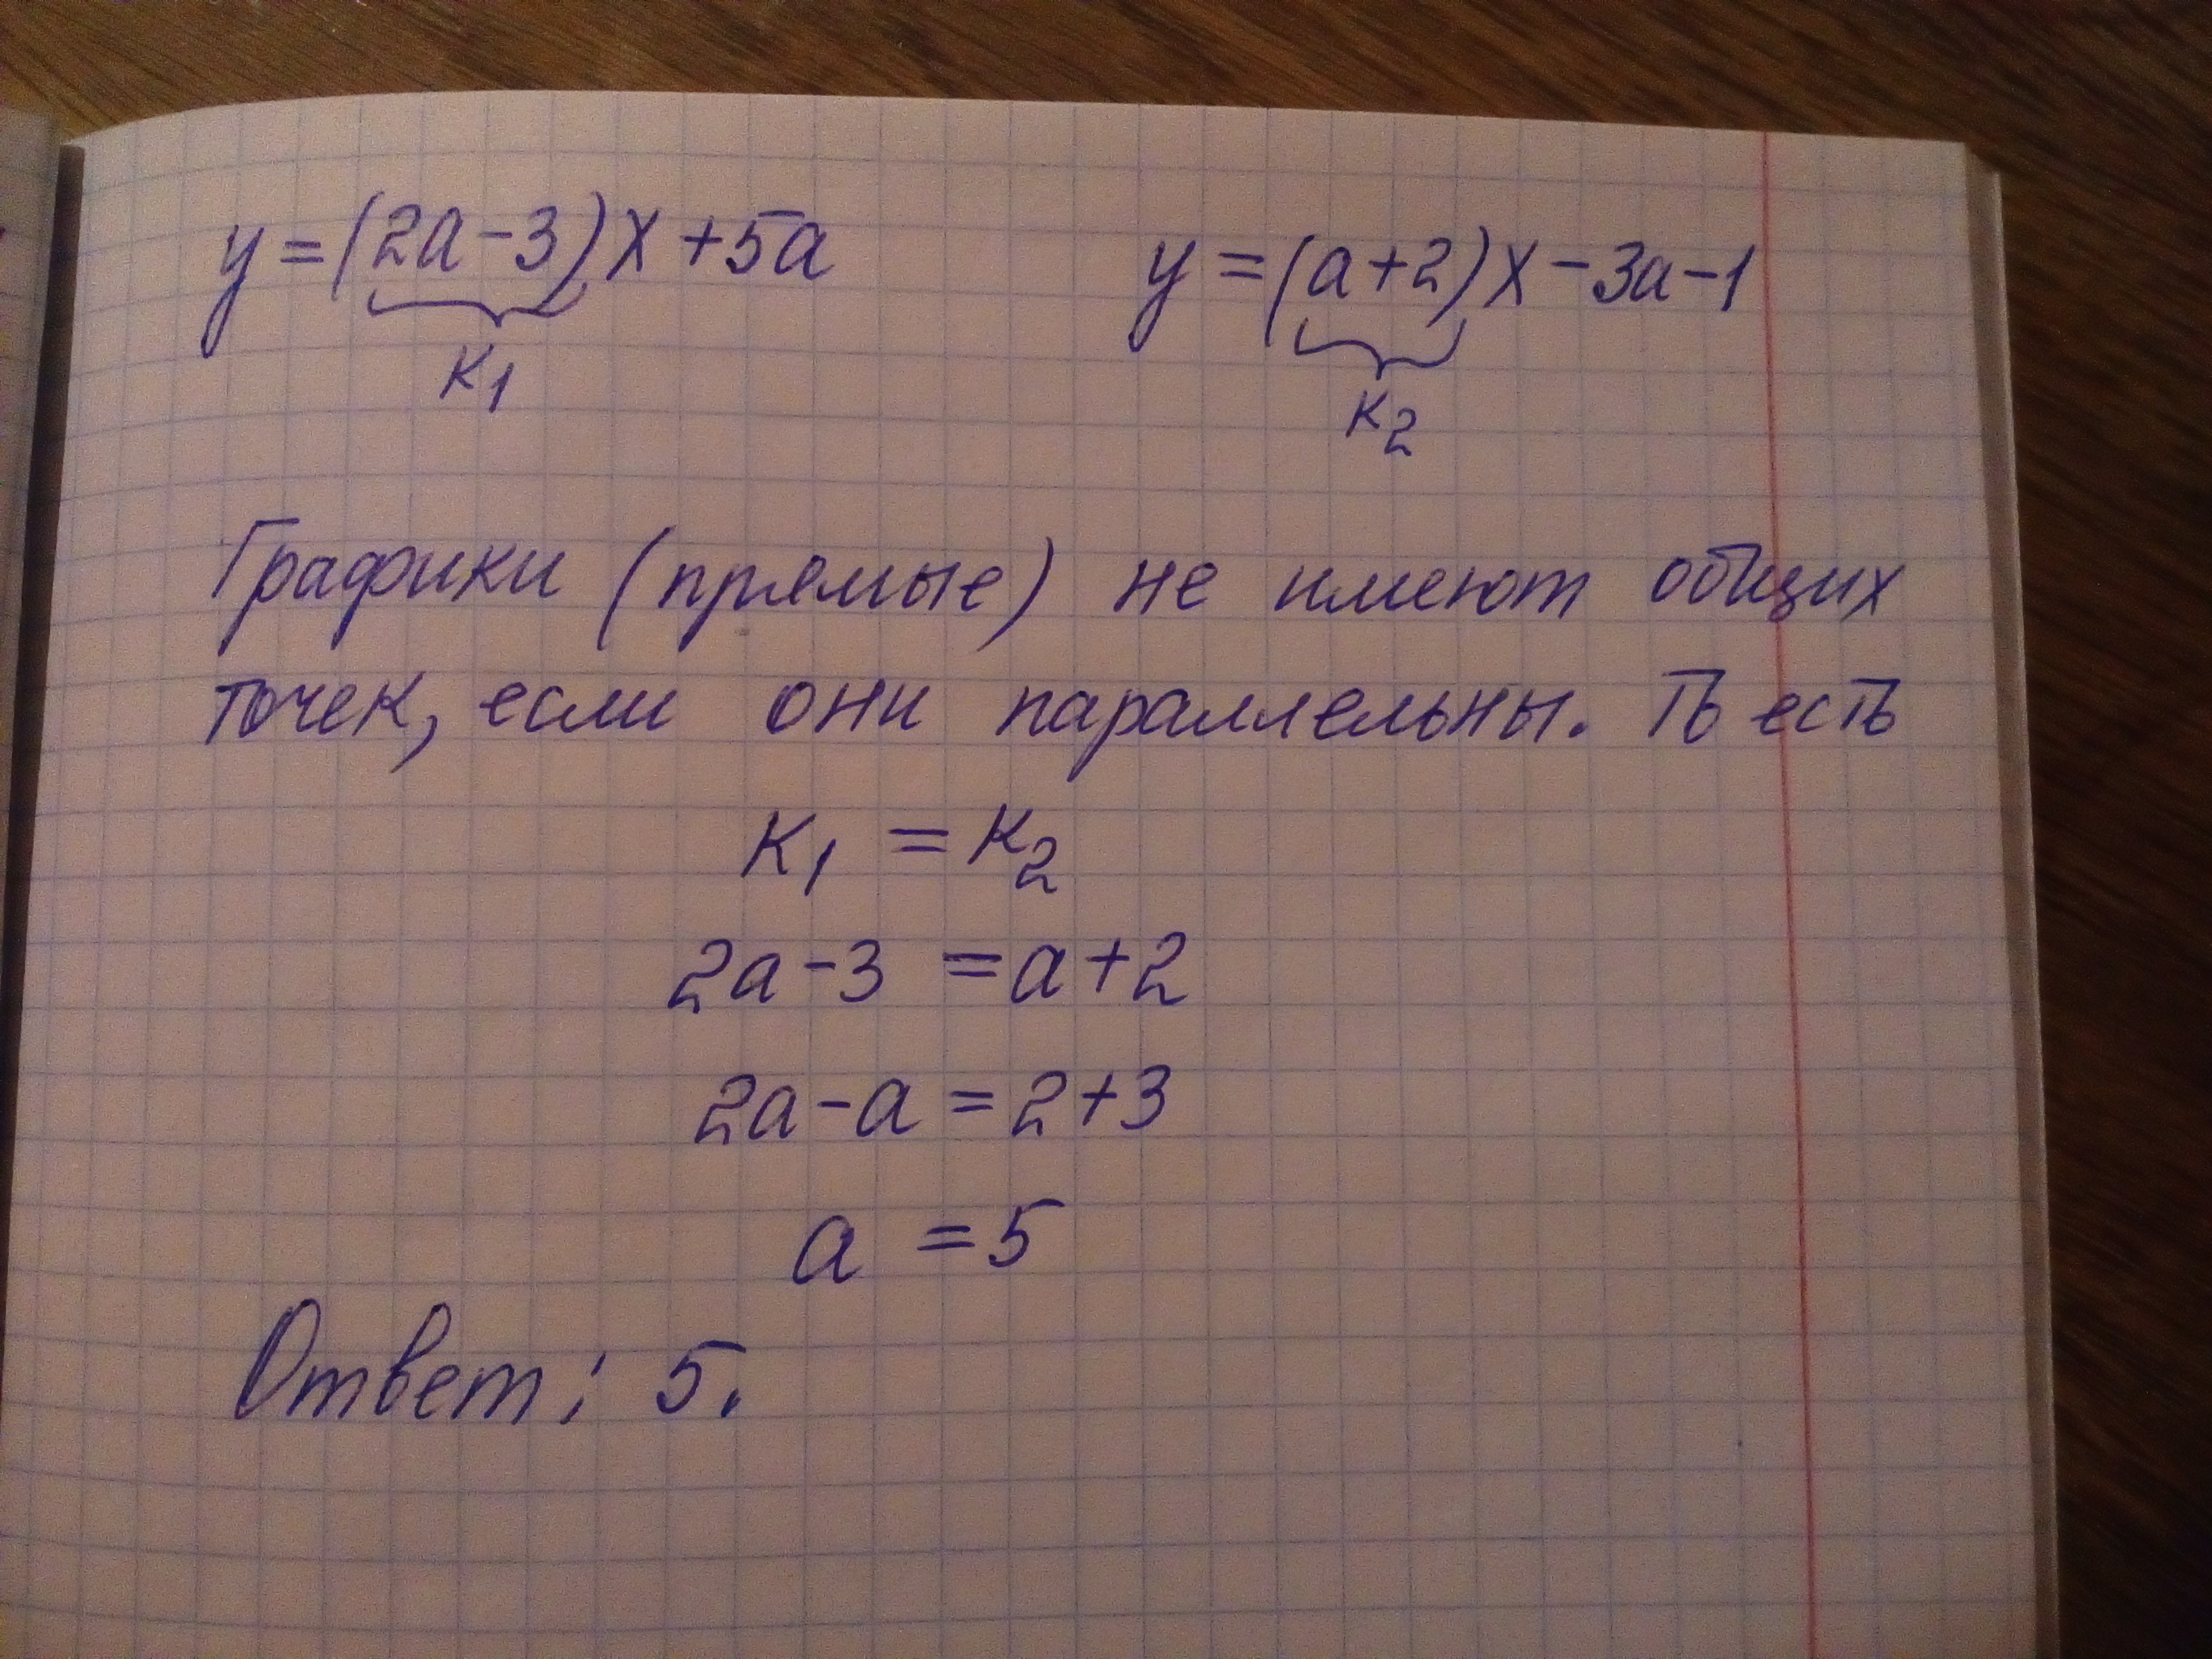 y = (2a - 3) x + 5a y = (a + 2) x - 3a - 1
K1 K2
Графики (прямые) не имеют общих
точек, если они параллельны. То есть
K1 = K2
2a - 3 = a + 2
2a - a = 2 + 3
a = 5
Ответ: 5.